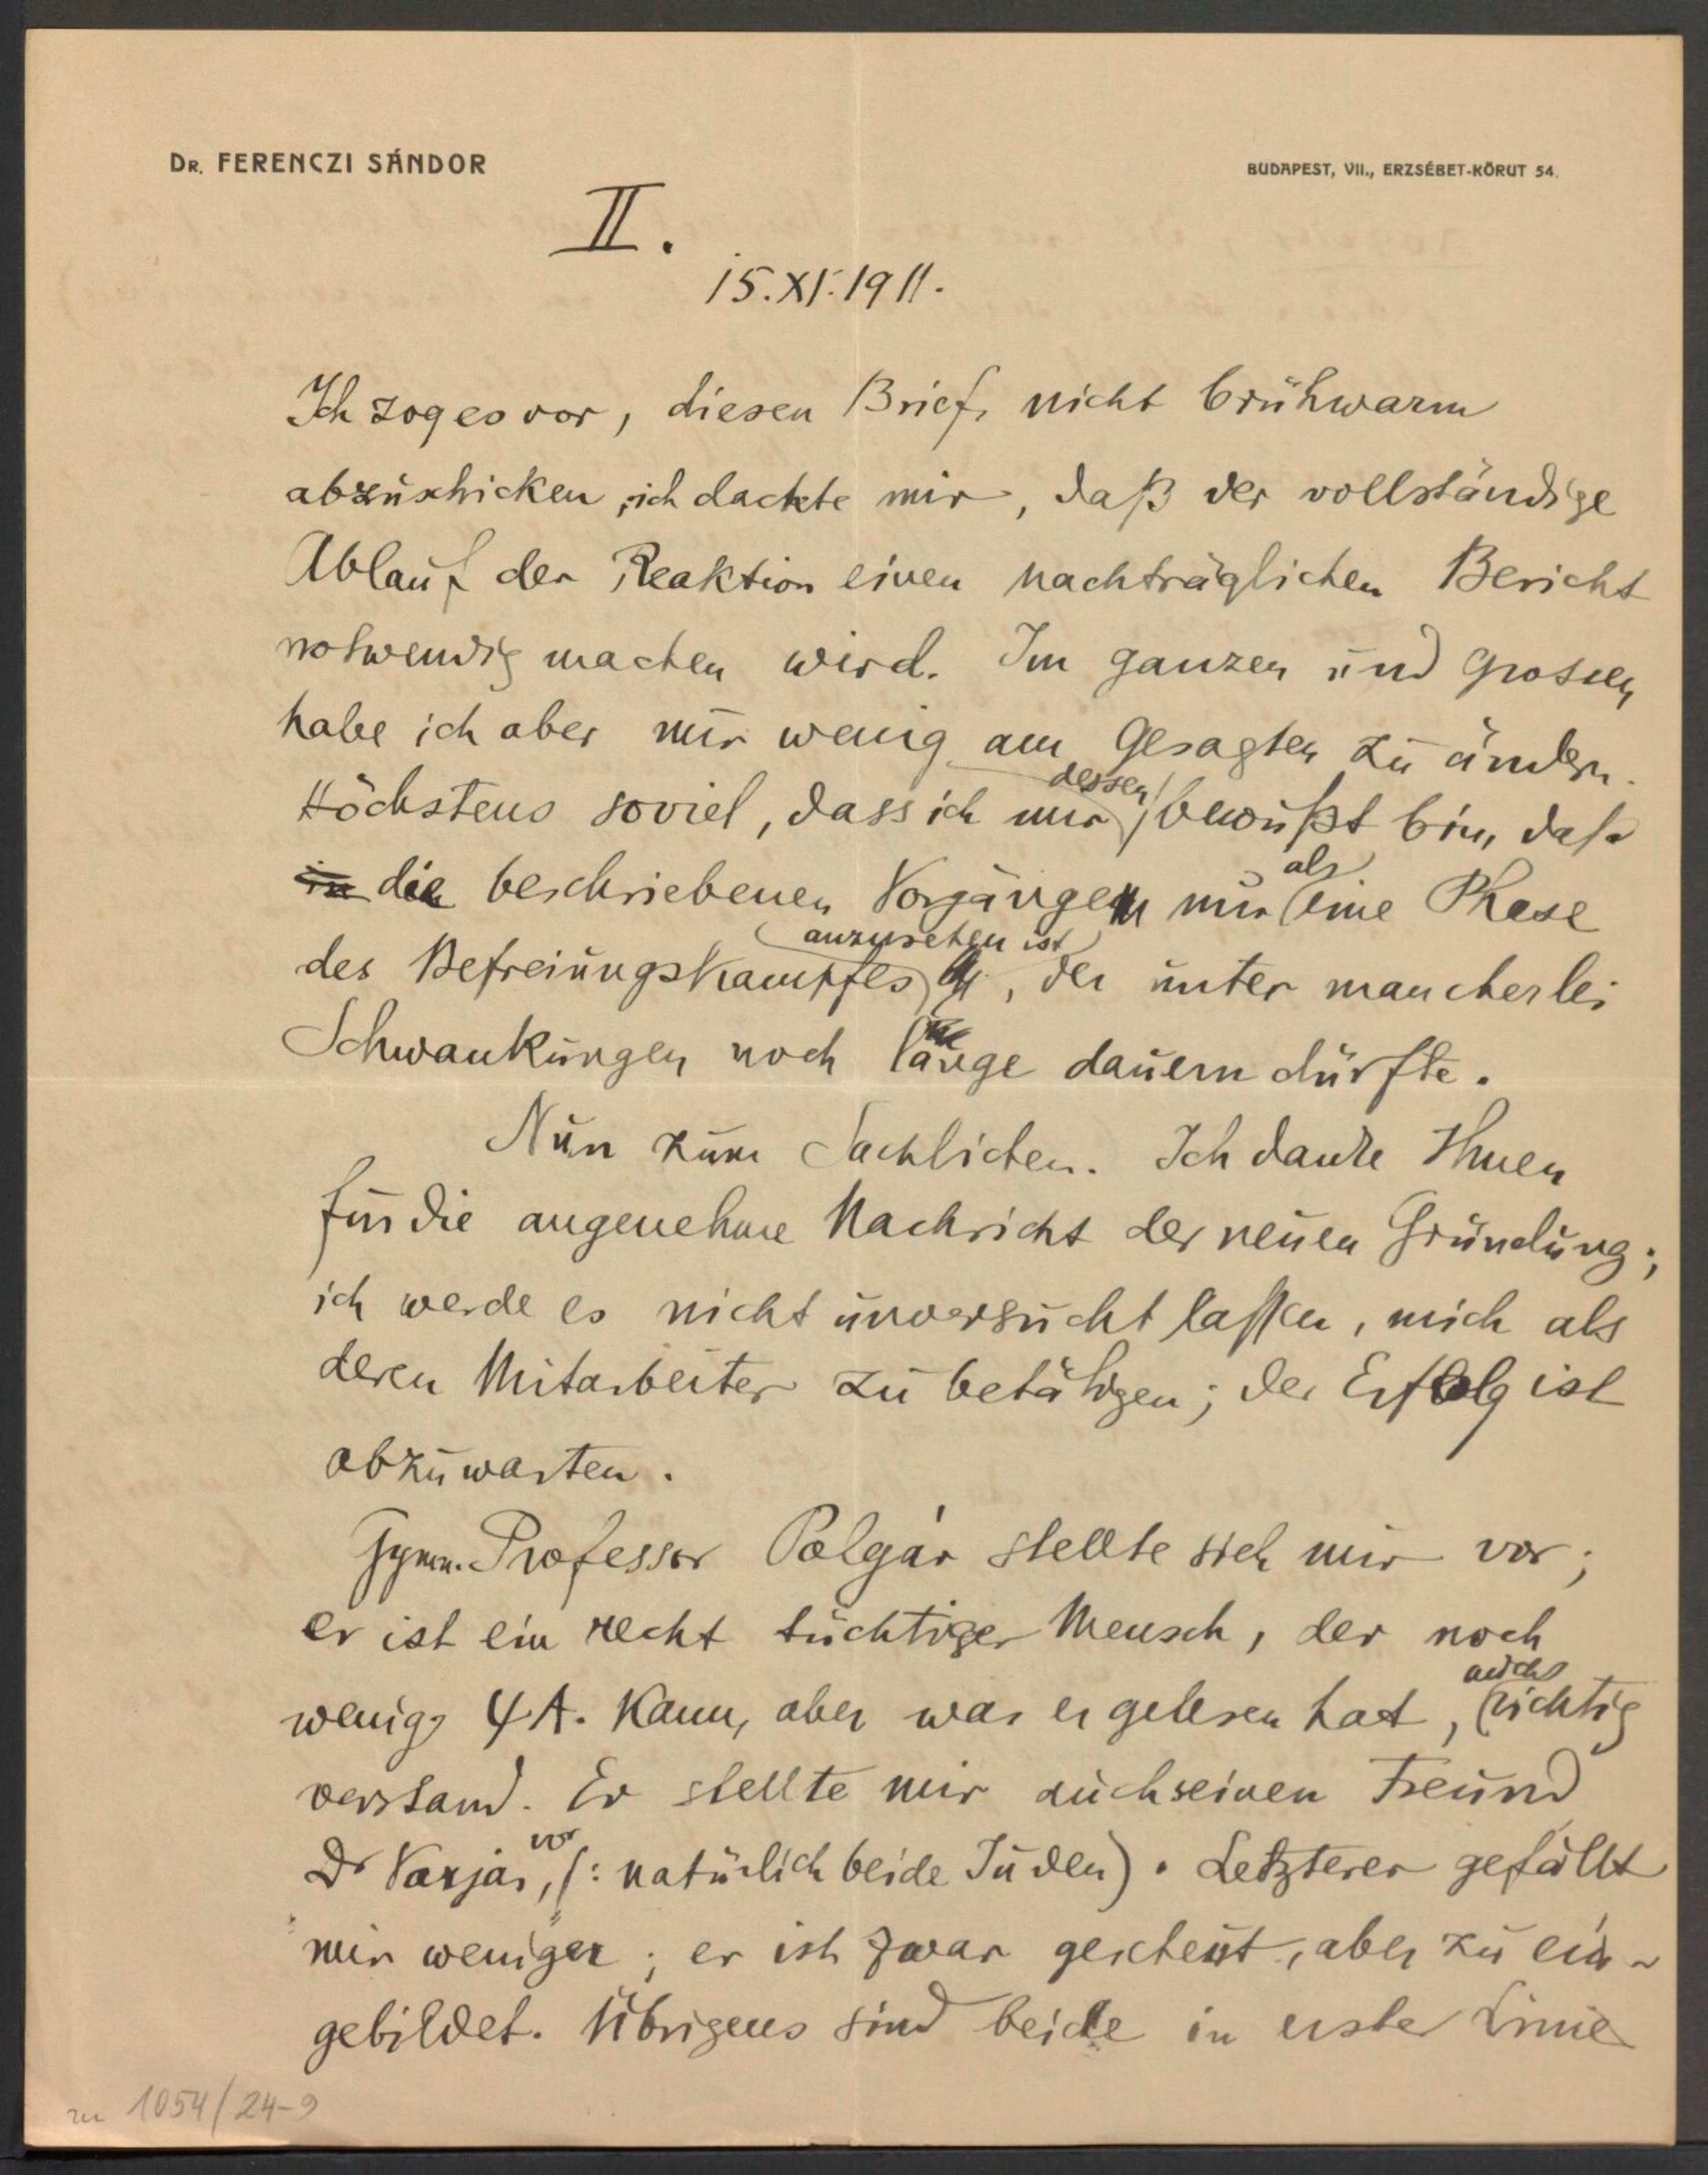 Dr. FERENCZI SÁNDOR
BUDAPEST, VII., ERZSÉBET-KÖRUT 54.
II.
15.XI.1911.
Ich zog es vor, diesen Brief nicht brühwarm
abzuschicken; ich dachte mir, daß der vollständige
Ablauf der Reaktion einen nachträglichen Bericht
notwendig machen wird. Im ganzen und grossen
habe ich aber nur wenig am Gesagten zu ändern.
Höchstens soviel, dass ich mir dessen bewußt bin, daß
die beschriebenen Vorgänge nur als eine Phase
des Befreiungskampfes anzusehen ist, der unter mancherlei
Schwankungen noch lange dauern dürfte.
Nun zum Sachlichen. Ich danke Ihnen
für die angenehme Nachricht der neuen Gründung;
ich werde es nicht unversucht lassen, mich als
deren Mitarbeiter zu betätigen; der Erfolg ist
abzuwarten.
Gymn. Professor Polgár stellte sich mir vor;
er ist ein recht tüchtiger Mensch, der noch
wenig ΨA. kann, aber was er gelesen hat, auch richtig
verstand. Er stellte mir auch seinen Freund
Dr Varjas vor, (: natürlich beide Juden). Letzterer gefällt
mir weniger; er ist zwar gescheut, aber zu ein-
gebildet. Übrigens sind beide in erster Linie
zu 1054/24-9